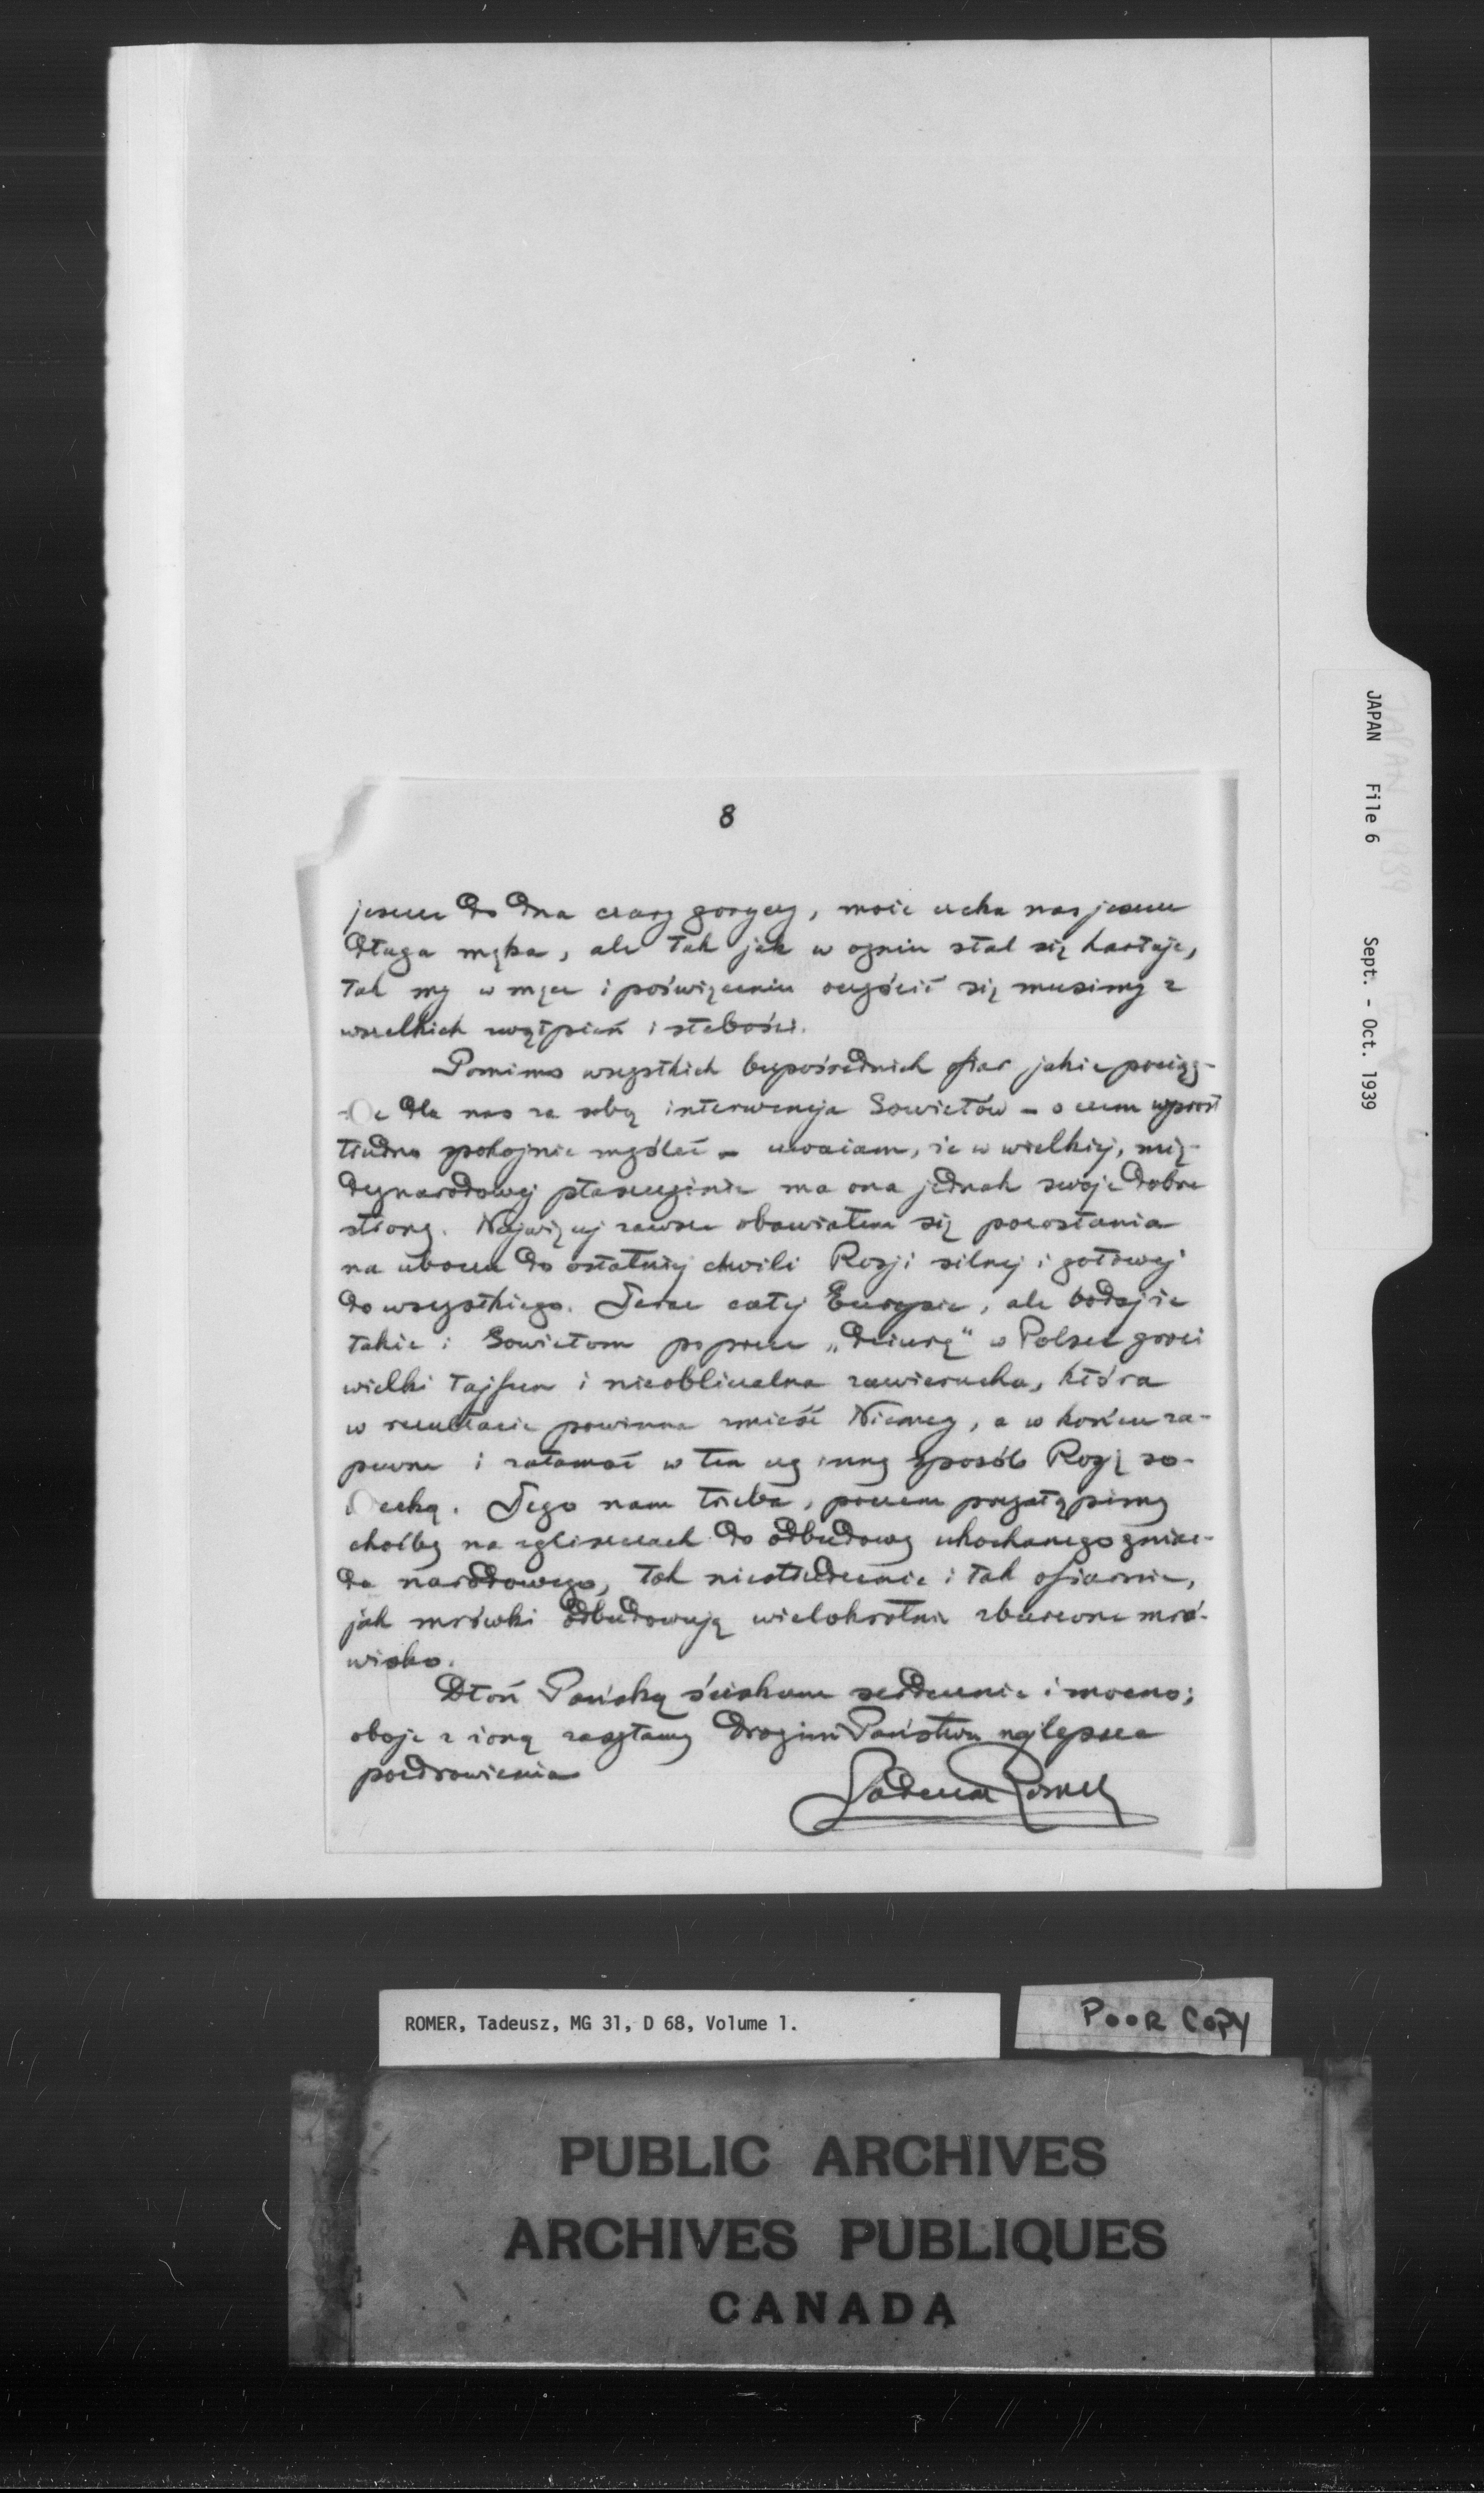 8
jeszcze do dna czary goryczy, może czeka nas jeszcze
długa męka, ale tak jak w ogniu stal się hartuje,
tak my w męce i poświęceniu oczyścić się musimy z
wszelkich zwątpień i słabości.
Pomimo wszystkich bezpośrednich ofiar jakie pociąg-
e dla nas za sobą interwencja Sowietów – o czem wprost
trudno spokojnie myśleć – uważam, że w wielkiej, mię-
dzynarodowej płaszczyźnie ma ona jednak swoje dobre
strony. Najwięcej zawsze obawiałem się pozostania
na uboczu do ostatniej chwili Rosji silnej i gotowej
do wszystkiego. Teraz całej Europie, ale bodajże
także i Sowietom poprzez „dziurę" w Polsce grozi
wielki tajfun i nieobliczalna zawierucha, która
w rezultacie powinna zmieść Niemcy, a w końcu za-
pewne i załamać w ten czy inny sposób Rosję so-
iecką. Tego nam trzeba, poczem przystąpimy
choćby na zgliszczach do odbudowy ukochanego gniaz-
da narodowego, tak niestrudzenie i tak ofiarnie,
jak mrówki odbudowują wielokrotnie zburzone mro-
wisko.
Dłoń Pańską ściskam serdecznie i mocno;
oboje z żoną zasyłamy Drogim Państwu najlepsze
pozdrowienia
Tadeusz Romer
JAPAN File 6 Sept. - Oct. 1939
ROMER, Tadeusz, MG 31, D 68, Volume 1.
POOR COPY
PUBLIC ARCHIVES
ARCHIVES PUBLIQUES
CANADA